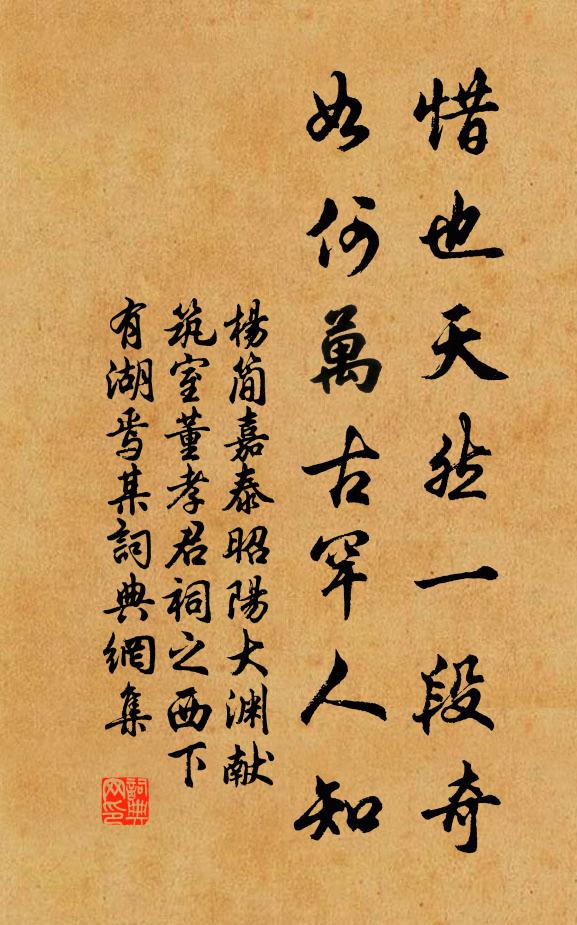 惜也天然一段奇
如何萬古罕人知
楊簡嘉泰昭陽大渊献
筑室董孝君祠之西下
有湖焉某詞典網集
詞典网印